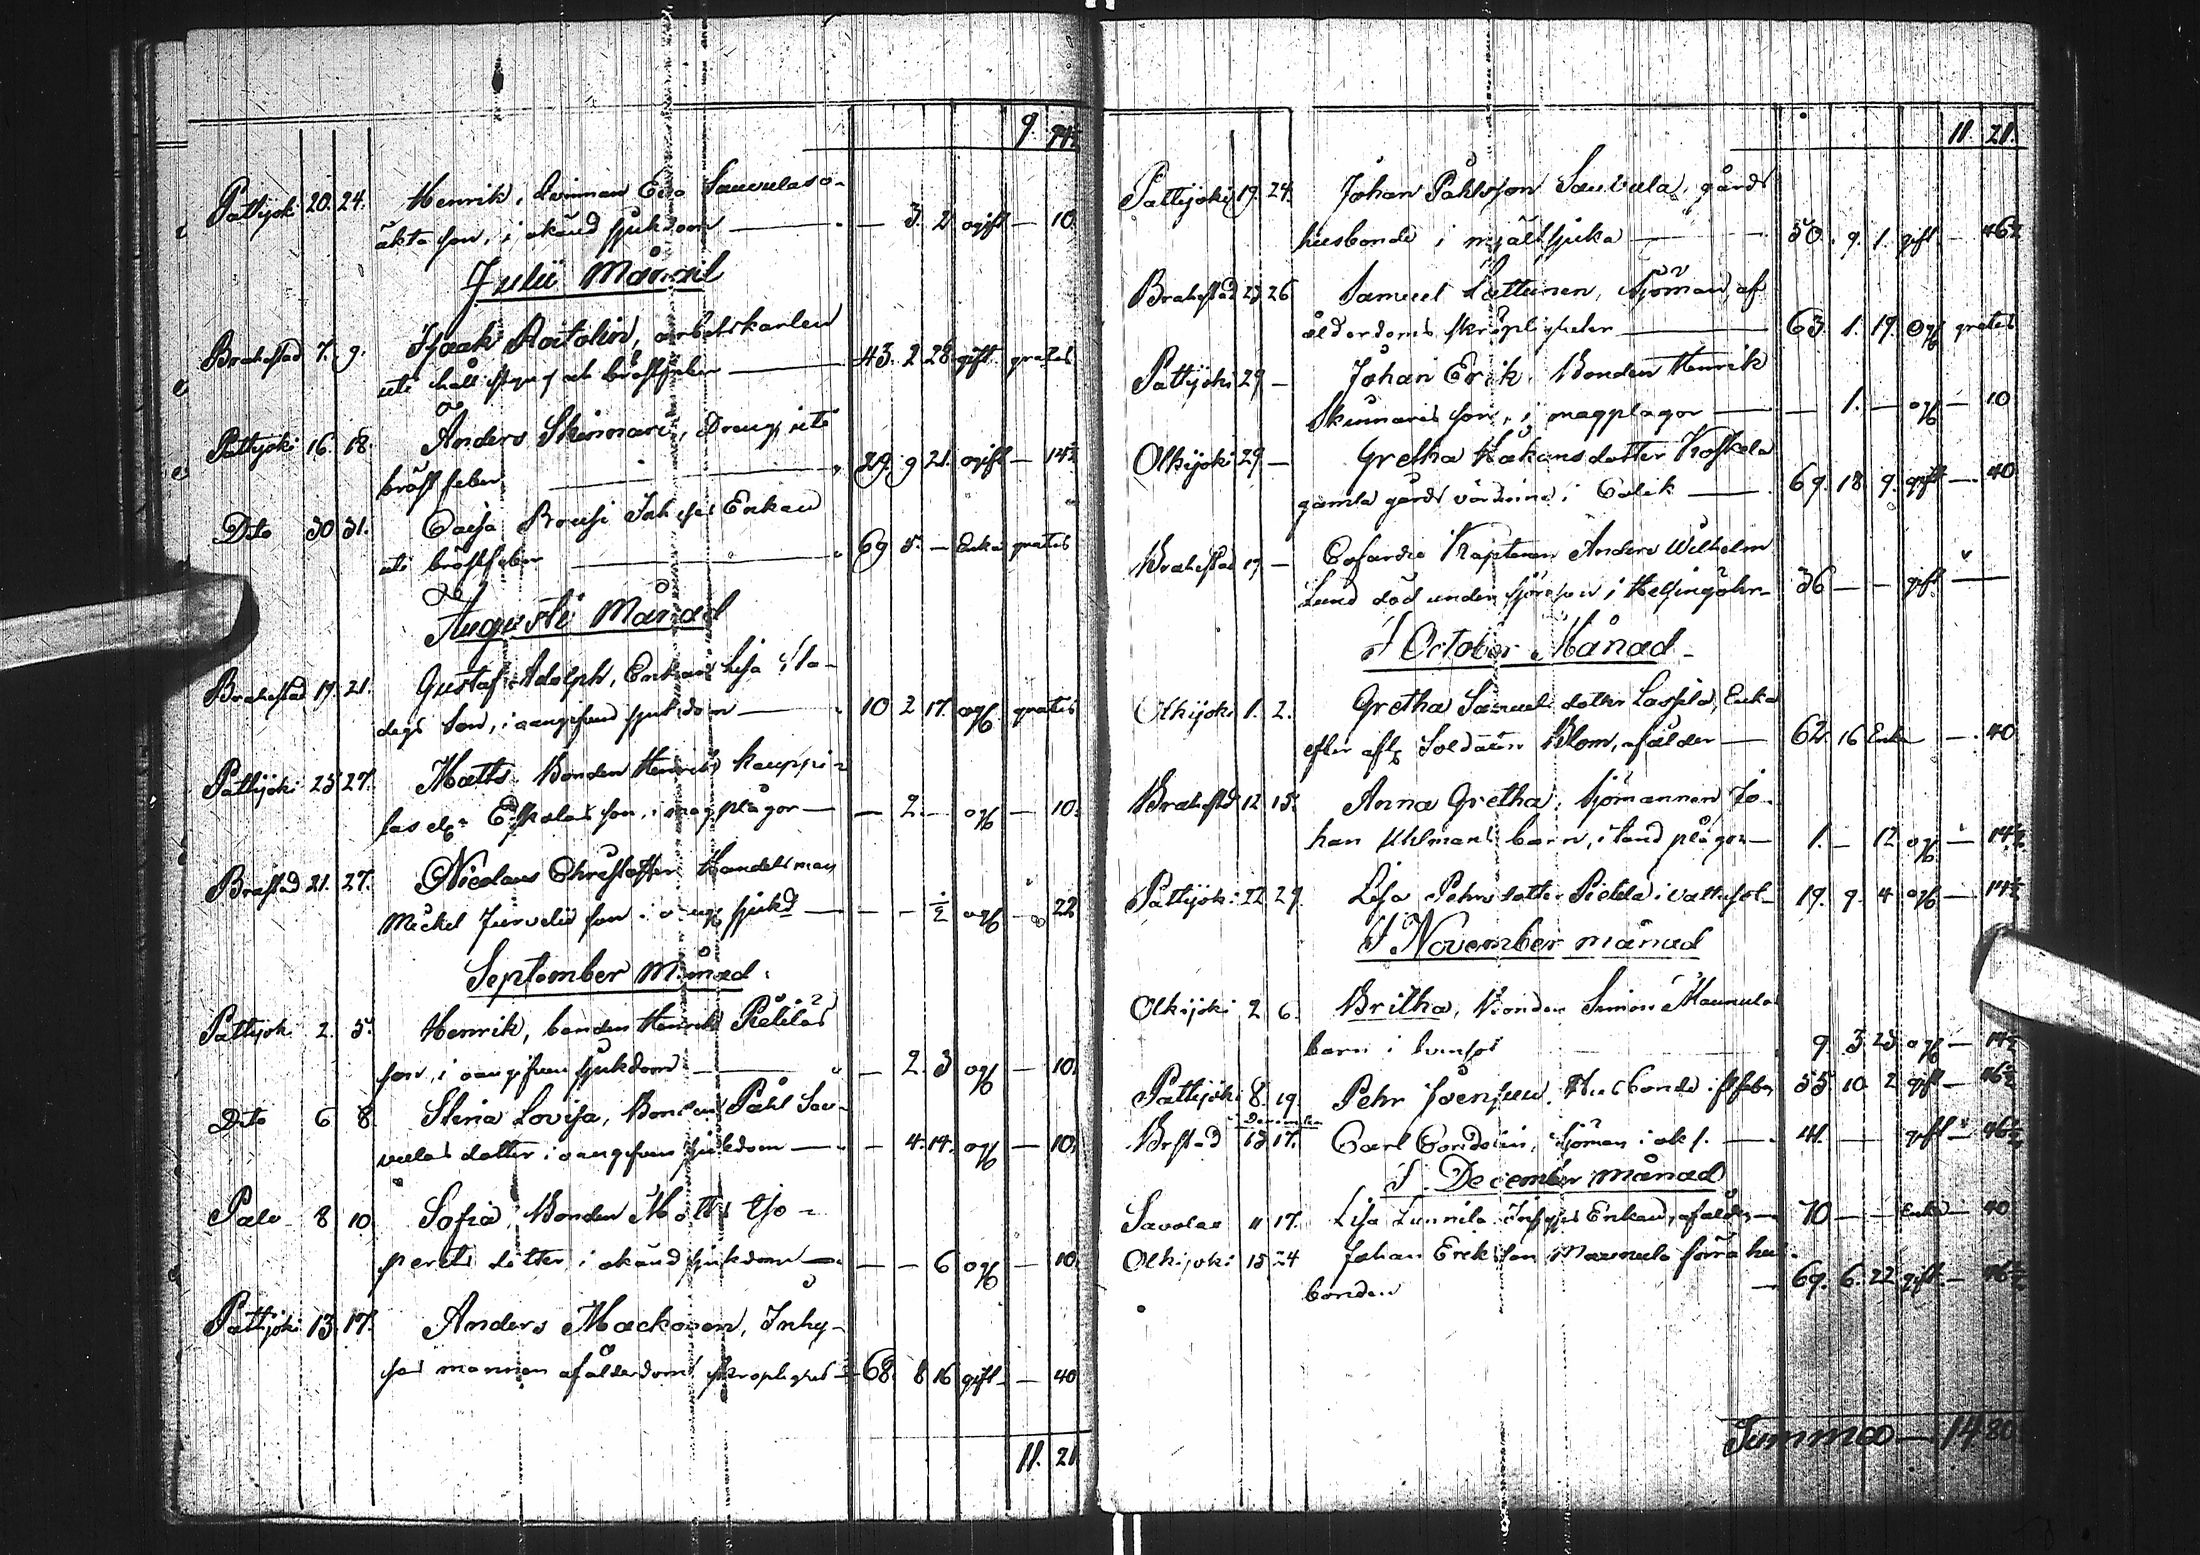 9. 94½
Pattijoki 20. 24. Henrik, Qvinnan Eva Sauvulas o-
äkta son, i okänd sjukdom — — 3. 2 ogift — 10
Julii Månad
Brahestad 7. 9. Isaak Roitolin, arbetskarlen
uti håll styng och bröstfeber — 43. 2 28 gift gratis
Pattijoki 16. 18. Anders Skinnari, Dreng, uti
bröstfeber — 29. 9 21. ogift — 14½
Dito 30 31. Caisa Inhyses Enkan
uti bröstfeber — 69 5. — Enka gratis
Augusti Månad
Brahestad 19. 21. Gustaf Adolph, Enkan Lisa Sla-
degs Son, i oangifven sjukdom — 10 2 17. og gratis
Pattijoki 25 27. Matts Bonden Henrik Kauppi-
las el. Eskolas son, i magplågor — — 2. — og — 10.
Brastad 21. 27. Nicolaus Christoffer Handelsman
Mickel Jurvelii son i sjukd — — — ½ og — 22
September Månad.
Pattijok. 2. 5. Henrik, bonden Henrik Pietilas
son, i oangifven sjukdom — — 2. 3 og — 10.
Dito 6 8 Stina Lovisa, Bonden Påhl Sau-
vulas dotter i oangifven sjukdom — — 4. 14. og — 10.
Palo 8 10 Sofia, Bonden Matts
dotter i okänd sjukdom — — — 6 og — 10.
Pattijoki 13. 17. Anders Mackonen, Inhy-
ses mannen af ålderdoms skröplighet — 68. 8 16 gift — 40
11. 21
11. 21.
Pattijoki 19. 24. Johan Påhlsson Sauvula, gårds
husbonde i mjältsjuka — 50. 9. 1. gift — 46½
Brahestad 23 26 Samuel Lattunen, Sjöman, af
ålderdoms skröpligheter — 63. 1. 19. Og gratis
Pattijoki 29 — Johan Erik, Bonden Henrik
Skinnaris son, i magplågor — — 1. — og — 10
Olkijoki 29 — Gretha Håkansdotter Koskela
gamla gårds värdinna i Colik — 69. 18. 9. gift — 40
Brahestad 19 — Cofardie Kaptenen Anders Wilhelm
Lund död under sjöresan i Helsingöhr — 36 — — gift —
I October Månad
Olkijoki 1. 2. Gretha Samuels dotter Laspila, Enka
efter afl Soldaten Blom, af ålder — 62. 16 Enka — 40
Brahestad 12 15. Anna Gretha, Sjömannen Jo-
han Uhlmans barn, i tand plågor — 1. — 12 og — 14½
Pattijoki 22 29. Lisa Pehrsdotter Pietila i vattusot — 19. 9. 4 og — 14½
I November månad
Olkijoki 2 6. Britha, Bonden Simon Maunulas
barn i — 9. 3. 23 og — 14½
Pattijoki 8. 19. Pehr Husbonde i — 55. 10. 2 gift — 46½
December
Brstad 13 17. Carl Sjöman i — 41. — gift — 46½
I December månad
Savolax 11 17. Lisa Lunnila Inhyses Enkan, af ålder — 70 — — Enka — 40
Olkijoki 15 24 Johan Eriksson Maunula förra hus-
bonden — 69. 6. 22 gift — 46½
Summa — 14 80